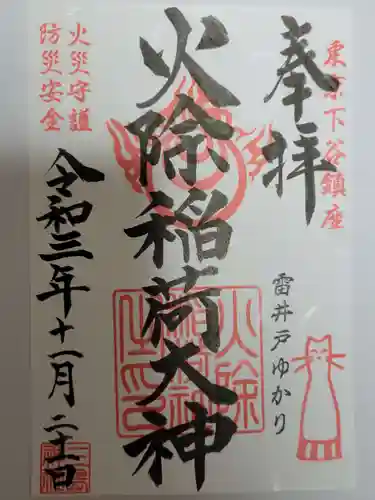 奉拝
東京下谷鎮座
雷井戸ゆかり
火除稲荷大神
火災守護
防災安全
令和三年十一月二十一日